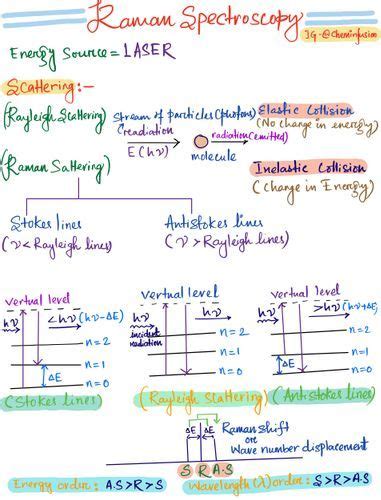 Raman Spectroscopy
IG-@cheminfusion
Energy Source = LASER
Scattering :-
(Rayleigh Scattering)
Stream of particles (photons)
(radiation
E (hν)
molecule
radiation(emitted)
Elastic Collision
(No change in energy)
(Raman Sattering)
Inelastic Collision
(Change in Energy)
Stokes lines
(ν < Rayleigh lines)
Antistokes lines
(ν > Rayleigh lines)
vertual level
hν
<hν (hν-ΔE)
n=2
n=1
ΔE
n=0
(Stokes lines)
vertual level
hν
hν
incident radiation
n=2
n=1
n=0
(Rayleigh Scattering)
vertual level
hν
>hν (hν+ΔE)
n=2
n=1
ΔE
n=0
(Antistokes lines)
ΔE
ΔE
Raman shift
or
Wave number displacement
S R A.S
Energy order : A.S>R>S
Wavelength (λ) order: S>R>A.S